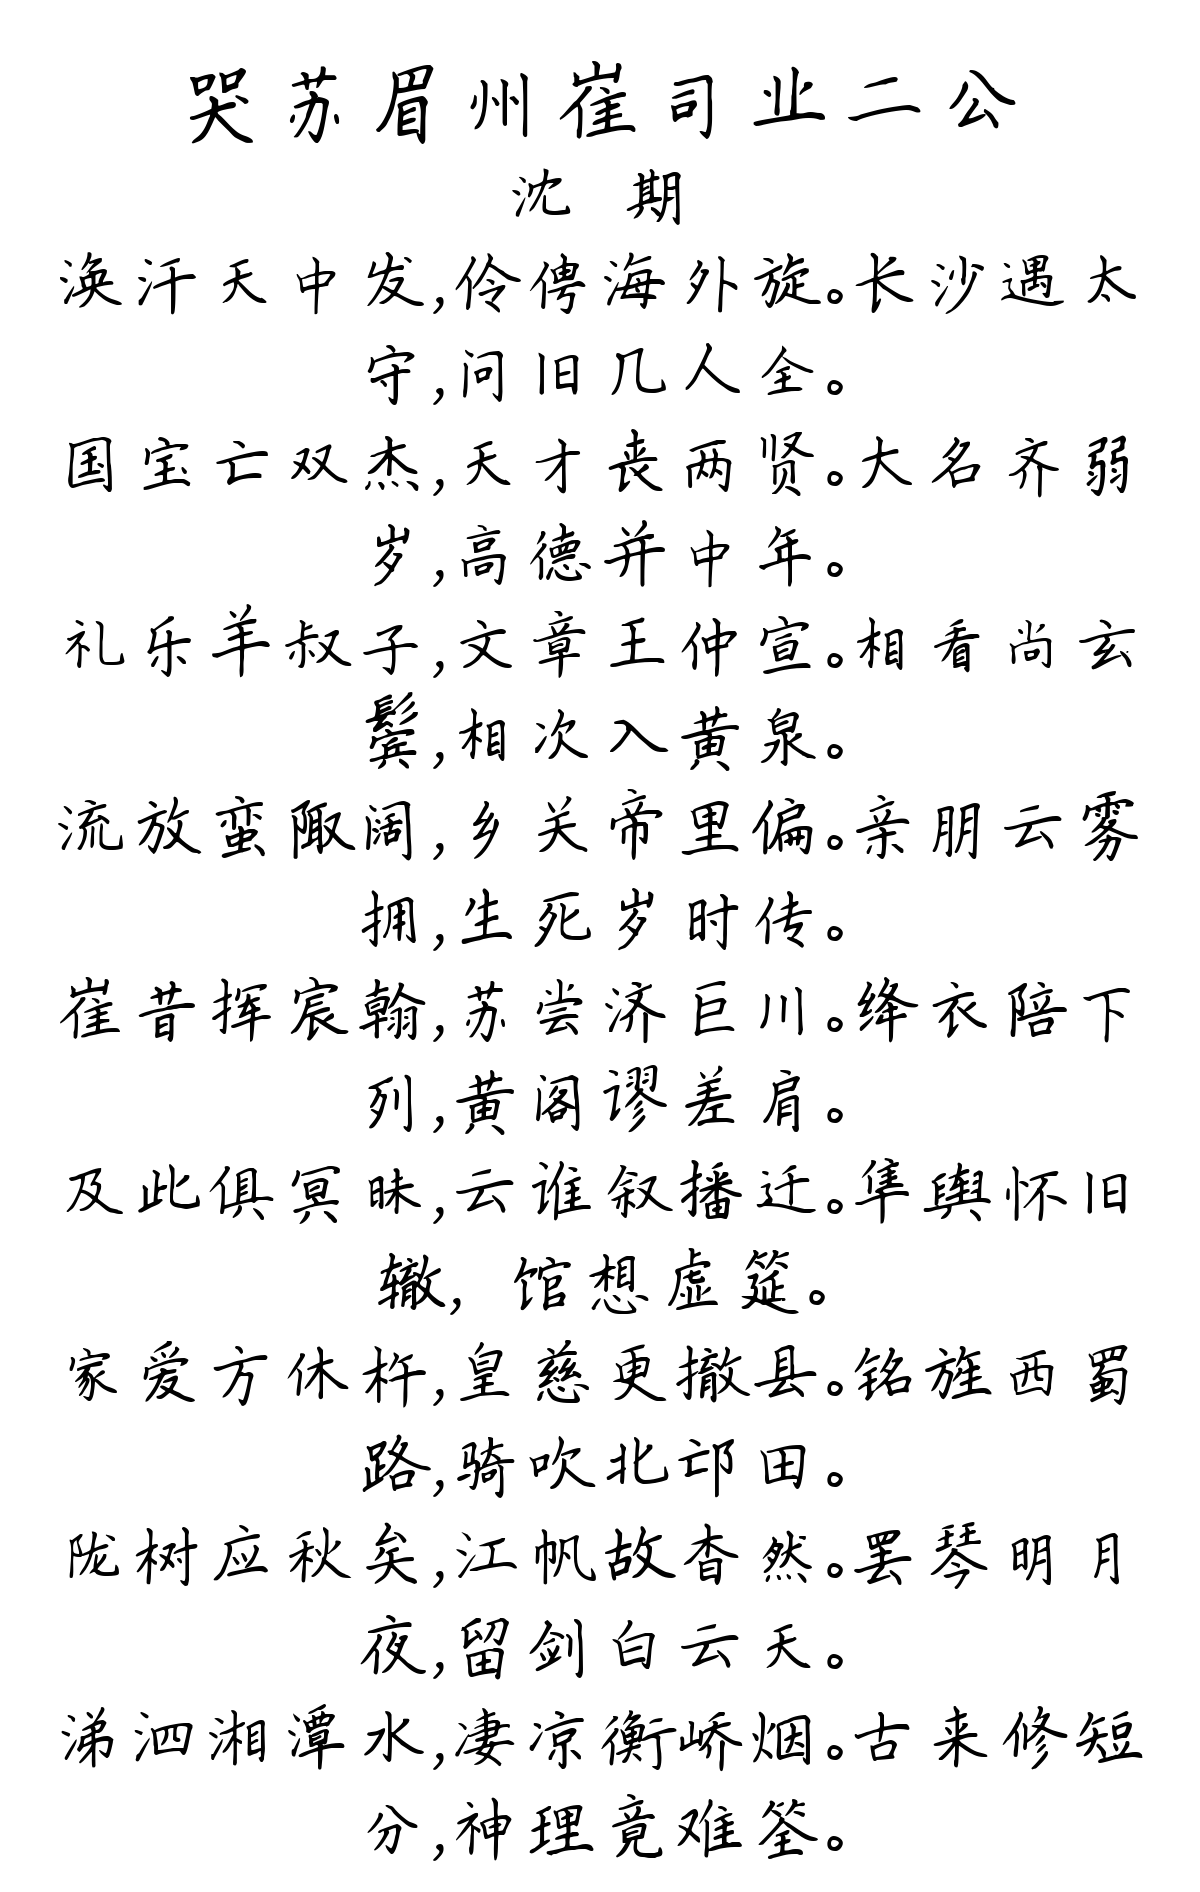 哭苏眉州崔司业二公
沈 期
涣汗天中发,伶俜海外旋。长沙遇太
守,问旧几人全。
国宝亡双杰,天才丧两贤。大名齐弱
岁,高德并中年。
礼乐羊叔子,文章王仲宣。相看尚玄
鬓,相次入黄泉。
流放蛮陬阔,乡关帝里偏。亲朋云雾
拥,生死岁时传。
崔昔挥宸翰,苏尝济巨川。绛衣陪下
列,黄阁谬差肩。
及此俱冥昧,云谁叙播迁。隼舆怀旧
辙, 馆想虚筵。
家爱方休杵,皇慈更撤县。铭旌西蜀
路,骑吹北邙田。
陇树应秋矣,江帆故杳然。罢琴明月
夜,留剑白云天。
涕泗湘潭水,凄凉衡峤烟。古来修短
分,神理竟难筌。